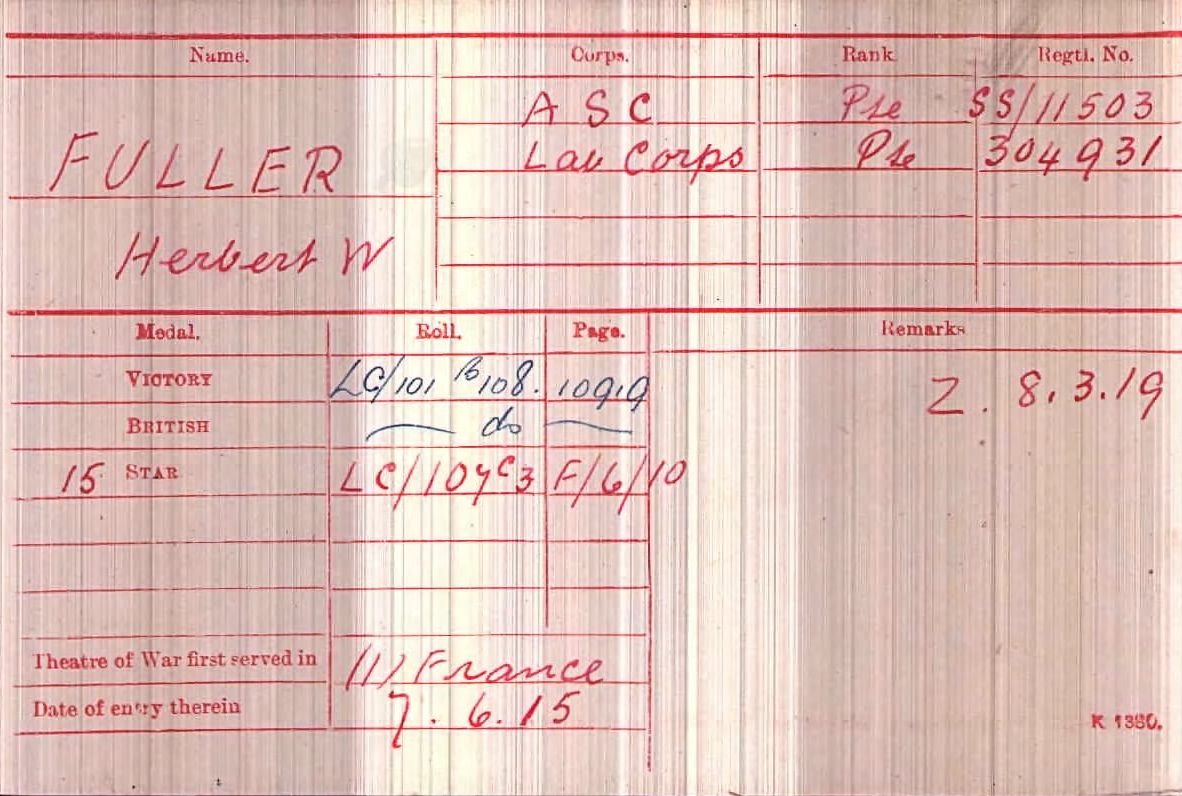 Name. Corps. Rank Regtl. No.
A S C Pte SS/11503
FULLER Lab Corps Pte 304931
Herbert W
Medal. Roll. Page. Remarks
VICTORY LC/101 B108. 10919 Z. 8.3.19
BRITISH do
15 STAR LC/107C3 F/6/10
Theatre of War first served in (1) France
Date of entry therein 7.6.15
K 1380.